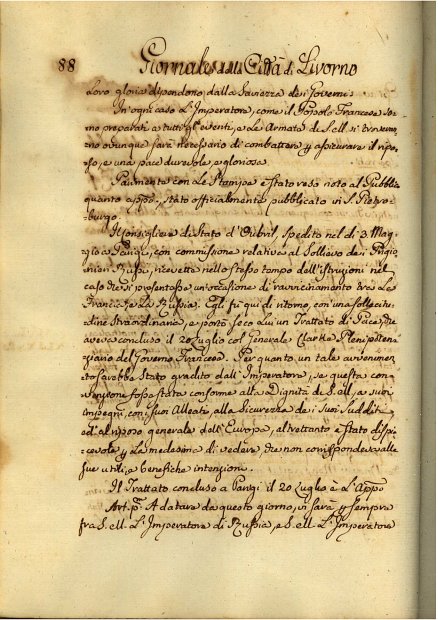 88 Giornale della Città di Livorno
Loro gloria dipendono dalla Saviezza de i Governi.
In ogni caso L'Imperatore, come il Popolo Francese so-
no preparati a tutti gl'eventi, e Le Armate di S. M. si troveran-
no ovunque sarà necessario di combattere p assicurare il ripo-
so, e una pace durevole, e gloriosa.
Parimente con Le Stampe è stato reso noto al Pubblico
quanto app.o, stato officialmente pubblicato in S. Pietro-
burgo.
Il Consigliere di Stato d'Oubril, spedito nel dì 3 Mag-
gio a Parigi, con commissione relativa al Sollievo de i Prigio-
nieri Russi, ricevette nello stesso tempo dell'istruzioni nel
caso che si presentasse un'occasione di ravvicinamento tra La
Francia, e La Russia. Egli fu qui di ritorno, con una sollecitu-
dine straordinaria, e portò seco Lui un Trattato di Pace, che
aveva concluso il 20 Luglio col Generale Clarke Plenipoten-
ziario del Governo Francese. Per quanto un tale avvenimen-
to sarebbe stato gradito dall'Imperatore, se questa con-
venzione fosse stata conforme alla Dignità di S. M., a suoi
impegni con i suoi Alleati, alla Sicurezza de i Suoi Sudditi
ed al riposo generale dell'Europa, altrettanto è stato dispia-
cevole p La medesima di vedere, che non corrispondeva alle
sue utili, e benefiche intenzioni.
Il Trattato concluso a Parigi il 20 Luglio è L'App.o
Art. p.o A datare da questo giorno, vi sarà p sempre
fra S. M. L'Imperatore di Russia, e S. M. L'Imperatore